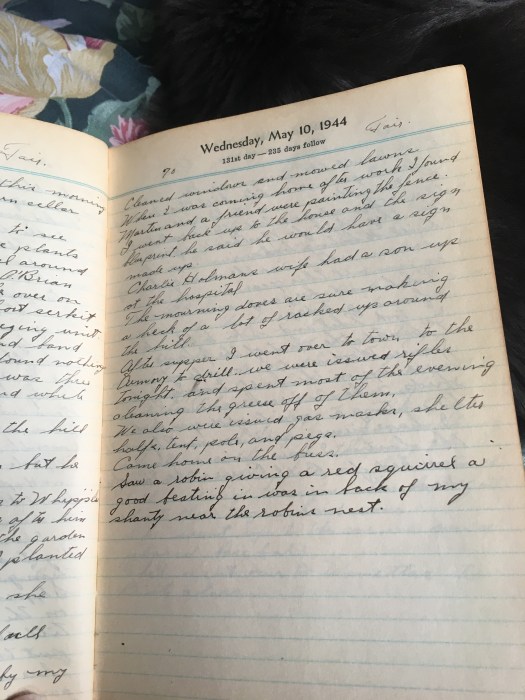 Fair.
this morning
cellar
to see
plants
around
O'Brian
over on
unit
and band
found nothing
was three
and while
the hill
but he
to Whipple
after him
the garden
planted
she
by my
Wednesday, May 10, 1944
131st day—235 days follow
70
Fair.
Cleaned windows and mowed lawns
When I was coming home after work I found
Martin and a friend were painting the fence.
I went back up to the house and the sign
he said he would have a sign
made up
Charlie Holmans wife had a son up
at the hospital
The mourning doves are sure making
a heck of a lot of racked up around
the hill.
After supper I went over to town to the
Armory to drill. we were issued rifles
tonight, and spent most of the evening
cleaning the greese off of them.
We also were issued gas masks, shelter
halfs, tent, pole, and pegs.
Came home on the buss.
Saw a robin giving a red squirrel a
good beating in was in back of my
shanty near the robins nest.